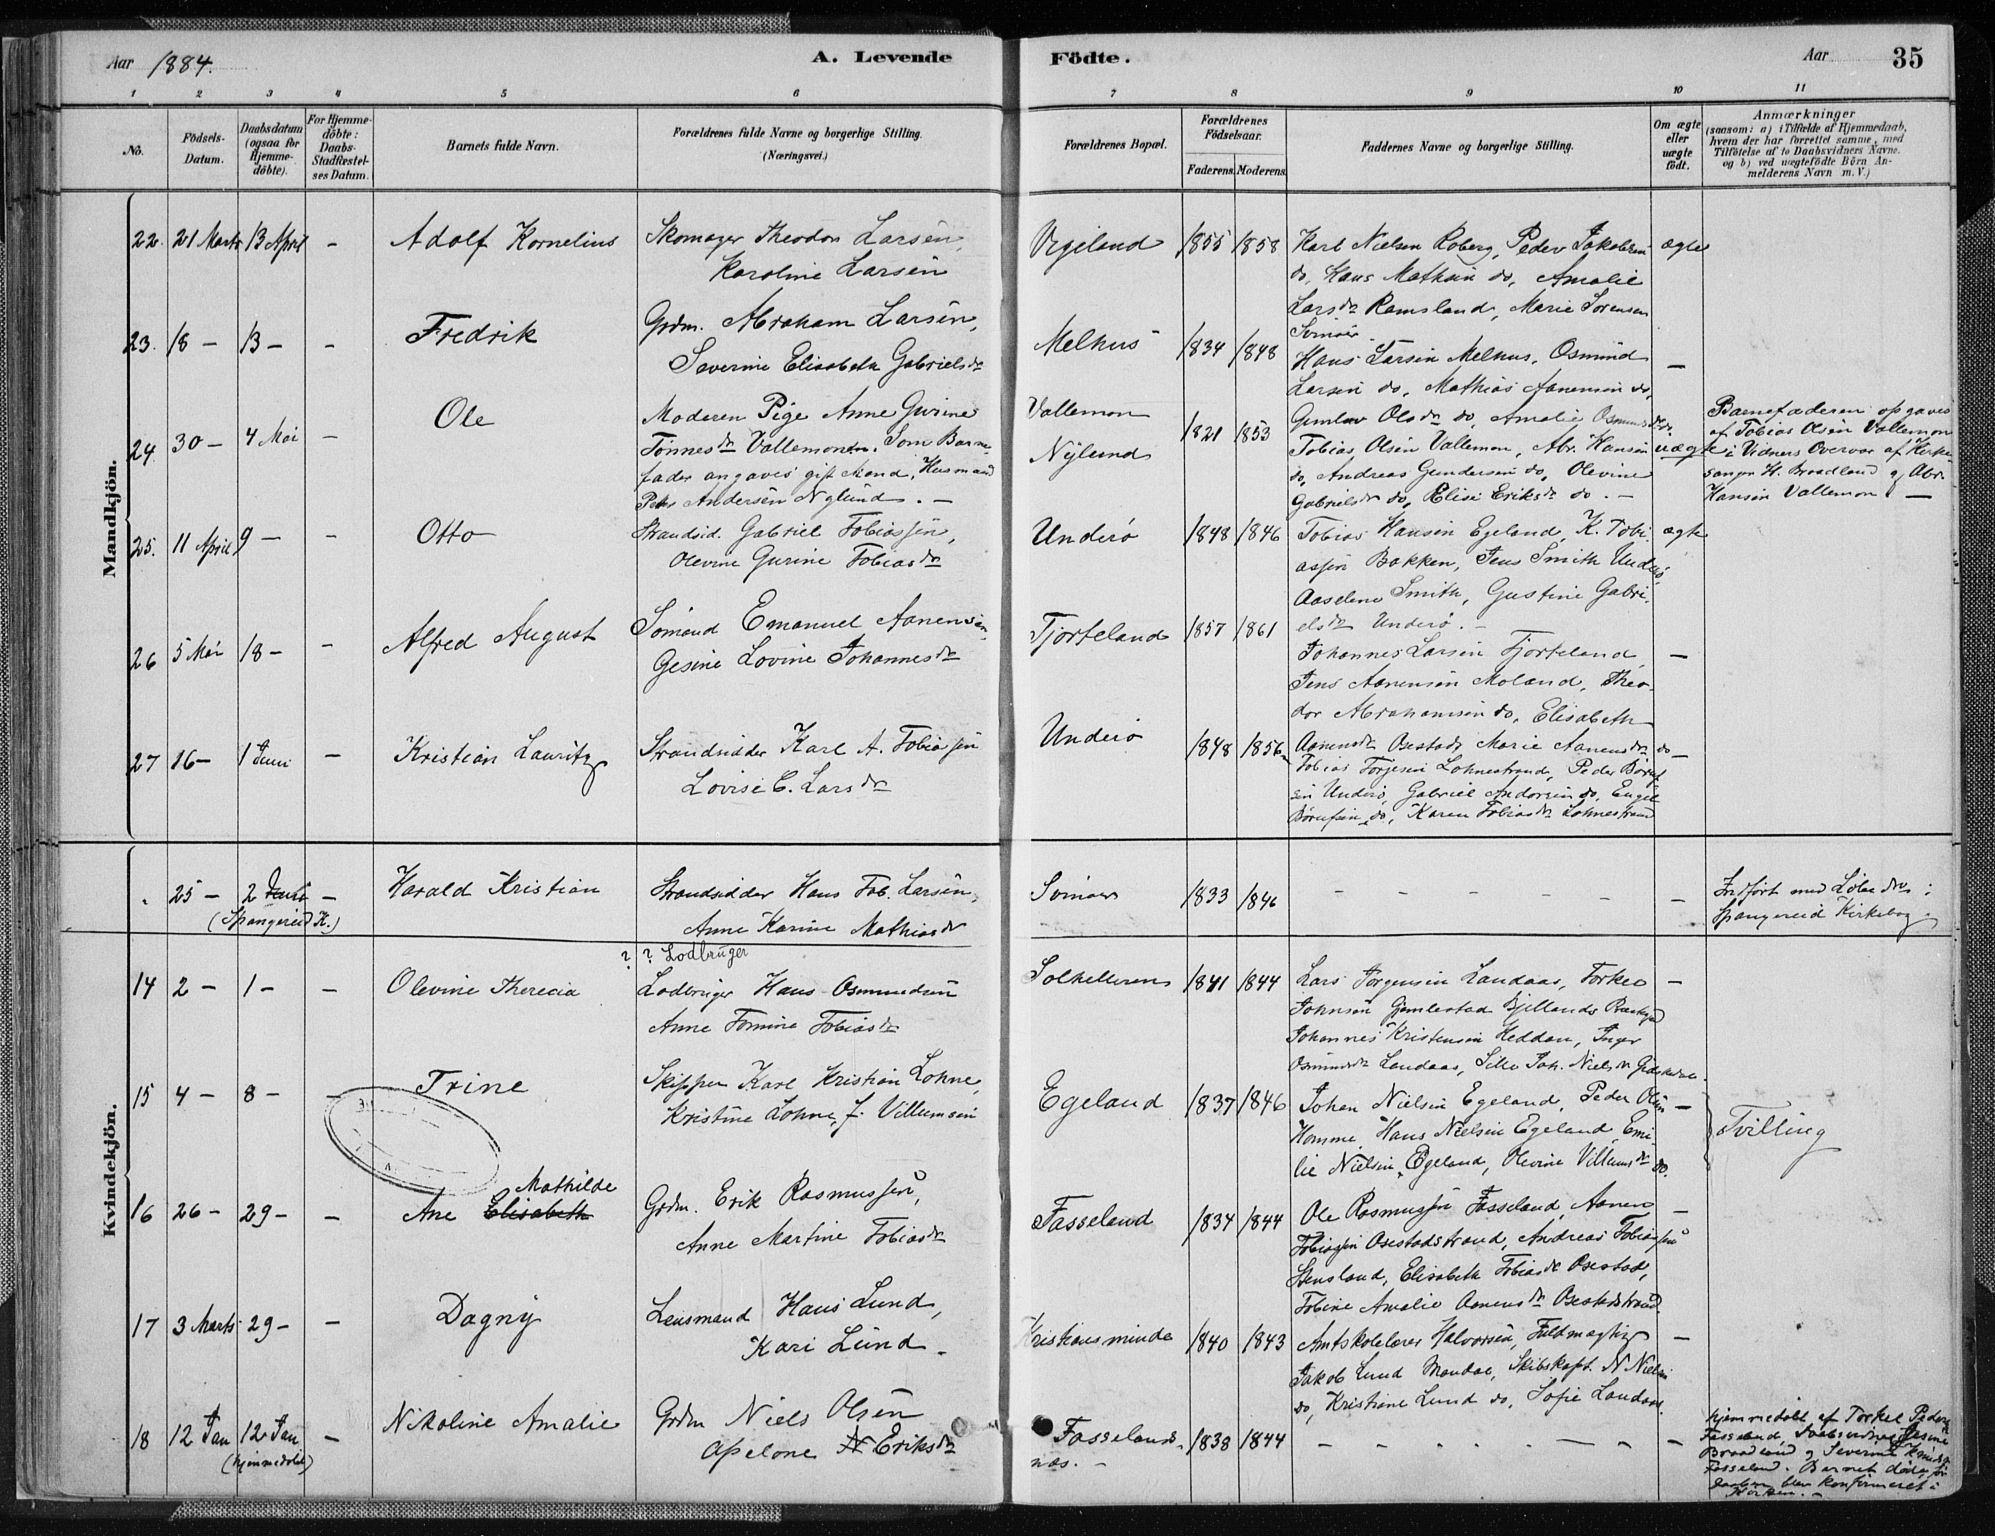 Aar 1884.
A. Levende
Födte.
Aar
35
1 2 3 4 5 6 7 8 9 10 11
No.
Födsels-Datum.
Daabsdatum (ogsaa for Hjemme-döbte).
For Hjemme-döbte: Daabs-Stadfæstel-ses Datum.
Barnets fulde Navn.
Forældrenes fulde Navne og borgerlige Stilling.
(Næringsvei.)
Forældrenes Bopæl.
Forældrenes Födselsaar.
Faderens. Moderens.
Faddernes Navne og borgerlige Stilling.
Om ægte eller uægte födt.
Anmærkninger
(saasom: a) i Tilfælde af Hjemmedaab,
hvem der har forrettet samme, med
Tilföielse af to Daabsvidners Navne.
og b) ved uægtefödte Börn An-
melderens Navn m. V.)
Mandkjön.
22. 21 Marts 13 April - Adolf Kornelius
Skomager Theodor Larsen,
Karoline Larsen
Vigeland 1855 1858
Karl Nielsen Roberg, Peder Jakobsen
do, Hans Mathsen do, Amalie
Larsdr Ramsland, Marie Sorensen
ægte
23. 18 - 13 - - Fredrik
Grdm. Abraham Larsen,
Severine Elisabeth Gabrielsdr
Melhus 1834 1848
Hans Larsen Melhus, Osmund
Larsen do, Mathias Aanensen do,
Gunlav Olsdr do, Amalie Osmundsdr do.
-
24 30 - 4 Mai - Ole
Moderen Pige Anne Gurine
Tönnesdr Vallemoen. Som Barne
fader angaves gift Mand, Husmand
Peder Andersen Nylund. -
Vallemon
Nylund
1821 1853
Tobias Olsen Vallemon, Abr. Hansen
do, Andreas Gundersen do, Olevine
Gabrielsdr do, Elise Eriksdr do. -
uægte
Barnefaderen opgaves
af Tobias Olsen Vallemon
i Vidners Overvær af Kirke
sanger H. Braadland og Abr.
Hansen Vallemon -
25. 11 April 9 - - Otto
Strandsid. Gabriel Tobiassen,
Olevine Gurine Tobiasdr
Underö 1848 1846
Tobias Hansen Egeland, K. Tobi-
assen Bakken, Jens Smith Underö,
Aaselene Smith, Gustine Gabri-
elsdr Underö. -
ægte
26 5 Mai 18 - - Alfred August
Sömand Emanuel Aanensen,
Gesine Lovine Johannesdr
Tjorteland 1857 1861
Johannes Larsen Tjorteland,
Jens Aanensen Moland, Theo-
dor Abrahamsen do, Elisabeth
Aanensdr Osestad, Marie Aanensdr do
-
27 16 - 1 Juni - Kristian Lauritz
Strandsidder Karl A. Tobiassen
Lovise C. Larsdr
Underö 1848 1856
Tobias Torjesen Lohnestrand, Peder Böruf
sen Underö, Gabriel Andersen do, Engel
Börufsen do, Karen Tobiasdr Lohnestrand
-
25 - 2 Juni - Harald Kristian
(Spangereid K.)
Strandsidder Hans Tob. Larsen,
Anne Karine Mathiasdr
1833 1846
- - - - - -
Indfört med Löbe No i
Spangereid Kirkebog.
Kvindekjön.
14 2 - 1 - - Olevine Therecia
? ? Lodbruger
Lodbruger Hans Osmundsen
Anne Tomine Tobiasdr
Solhelleren 1841 1844
Lars Jörgensen Landaas, Torkel
Johnsen Gjemlestad Bjellands
Johannes Kristensen Heddan, Inger
Osmundsdr Landaas,
-
15 4 - 8 - - Trine
Skipper Karl Kristian Lohne,
Kristine Lohne, f. Villumsen
Egeland 1837 1846
Johan Nielsen Egeland, Peder Olsen
Homme, Hans Nielsen Egeland, Emi-
lie Nielsen Egeland, Olevine Villumsdr do.
-
Tvilling
16 26 - 29 - - Ane Elisabeth Mathilde
Grdm. Erik Rasmussen,
Anne Martine Tobiasdr
Fasseland 1834 1844
Ole Rasmussen Fasseland, Aanen
Tobiassen Osestadstrand, Andreas Tobiassen
Stensland, Elisabeth Tobiasdr Osestad,
Tobine Amalie Aanensdr Osestadstrand.
-
17 3 Marts 29 - - Dagny
Lensmand Hans Lund,
Kari Lund -
Kristiansminde 1840 1843
Amtskolelærer Halvorsen, Fuldmægtig
Jakob Lund Mandal, Skibskapt. N. Nielsen
do, Kristiane Lund do, Sofie Landaas.
-
18 12 Jan 12 Jan - Nikoline Amalie
(hjemmedöbt)
Grdm Niels Olsen
Apelone N Eriksdr
Fasselands-
næs. -
1838 1844
- - - - - -
hjemmedöbt af Torkel Peders
Fasseland, Daabsvidner Gesine
Braadland og Severine
Fasseland. Barnet döde, för
Daaben blev konfirmeret i
Kirken. -